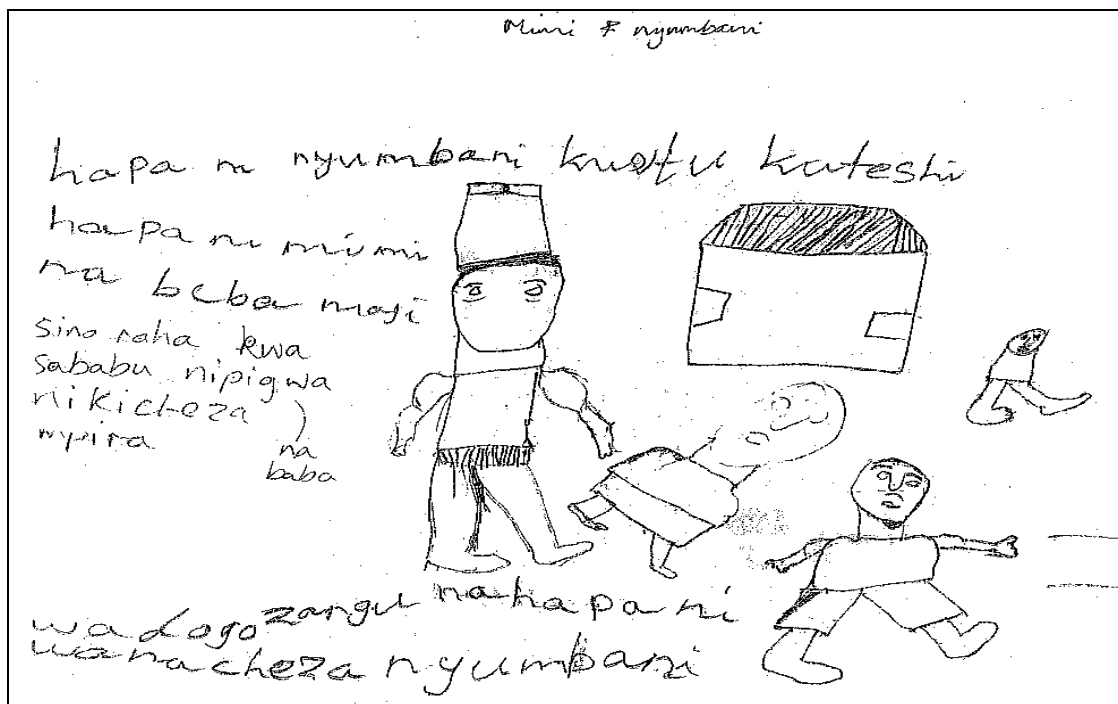 Mimi & nyumbani
hapa ni nyumbani kwetu kateshi
hapa ni mimi
na beba maji
sina raha kwa
sababu nipigwa
nikicheza )
mpira
na
baba
na hapa ni
wadogo zangu
wanacheza nyumbani